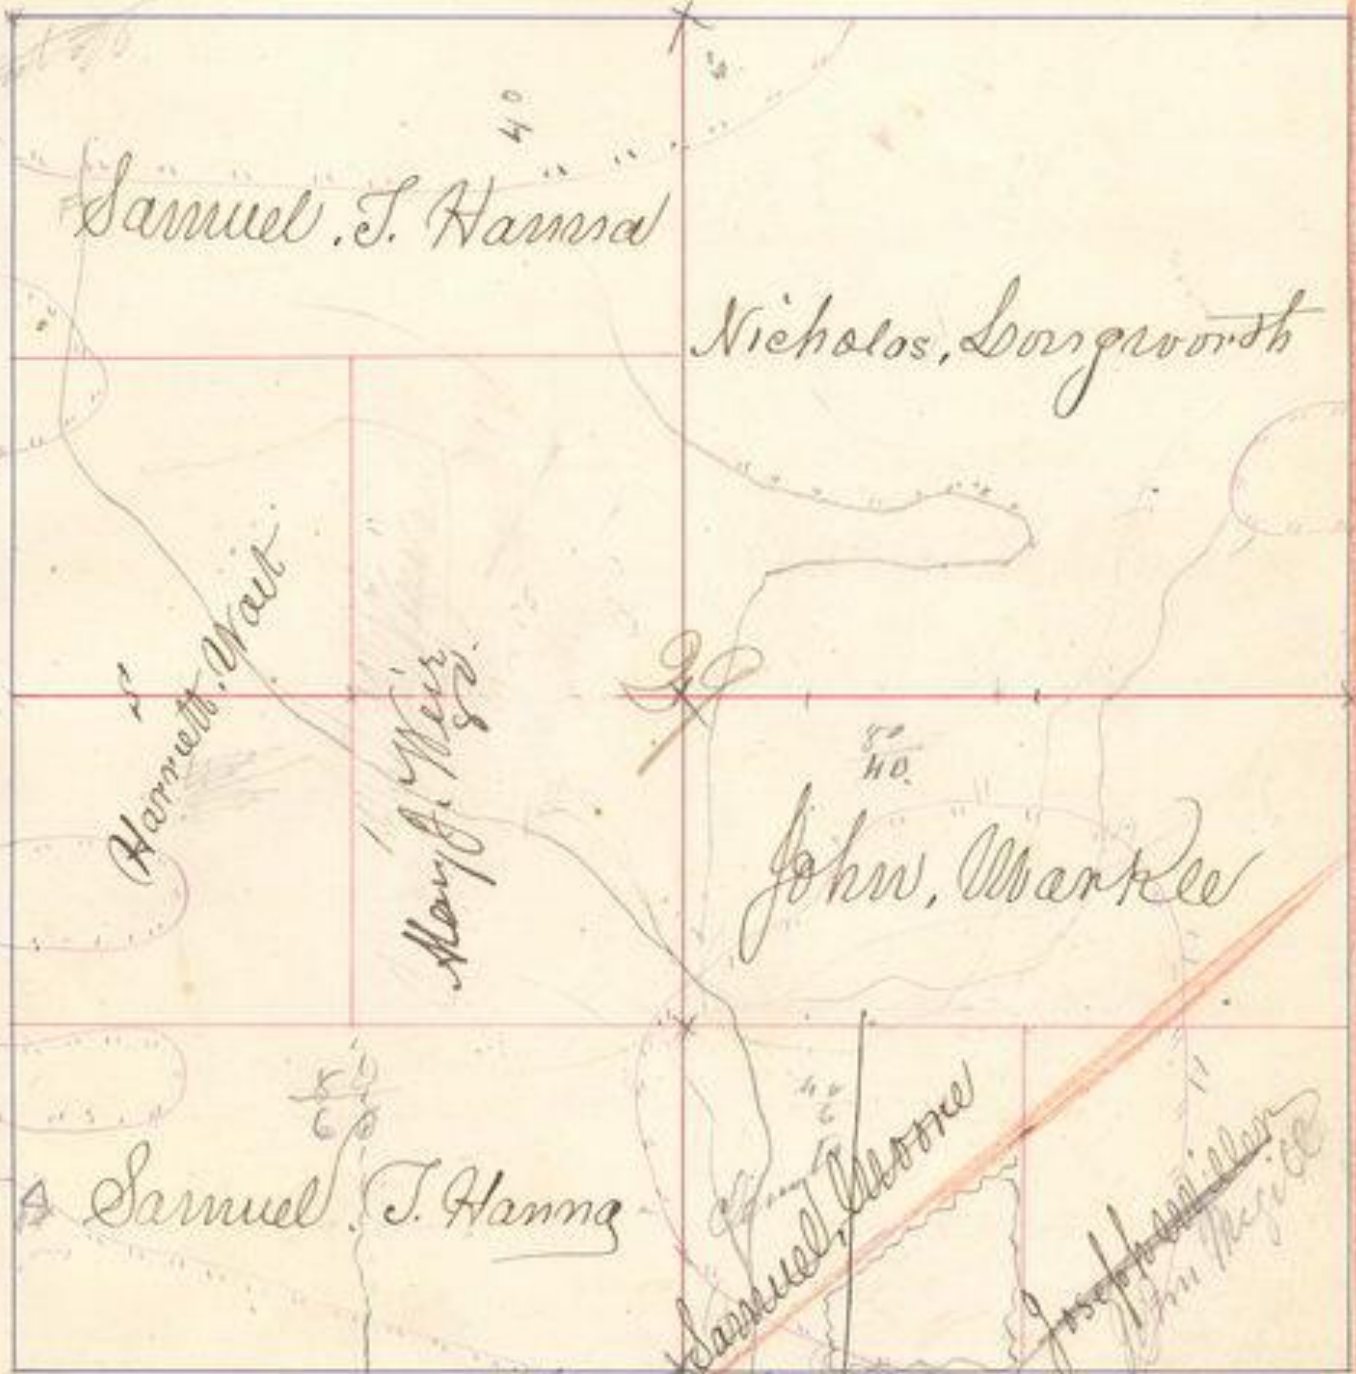 40
Samuel. T. Hanna
Nicholas, Longworth
Harriett. Wait
5
Mary J. Weir
80.
80
40.
John, Markee
80
60
Samuel. T. Hanna
40
6
Samuel, Moore
Joseph Miller
John McGill